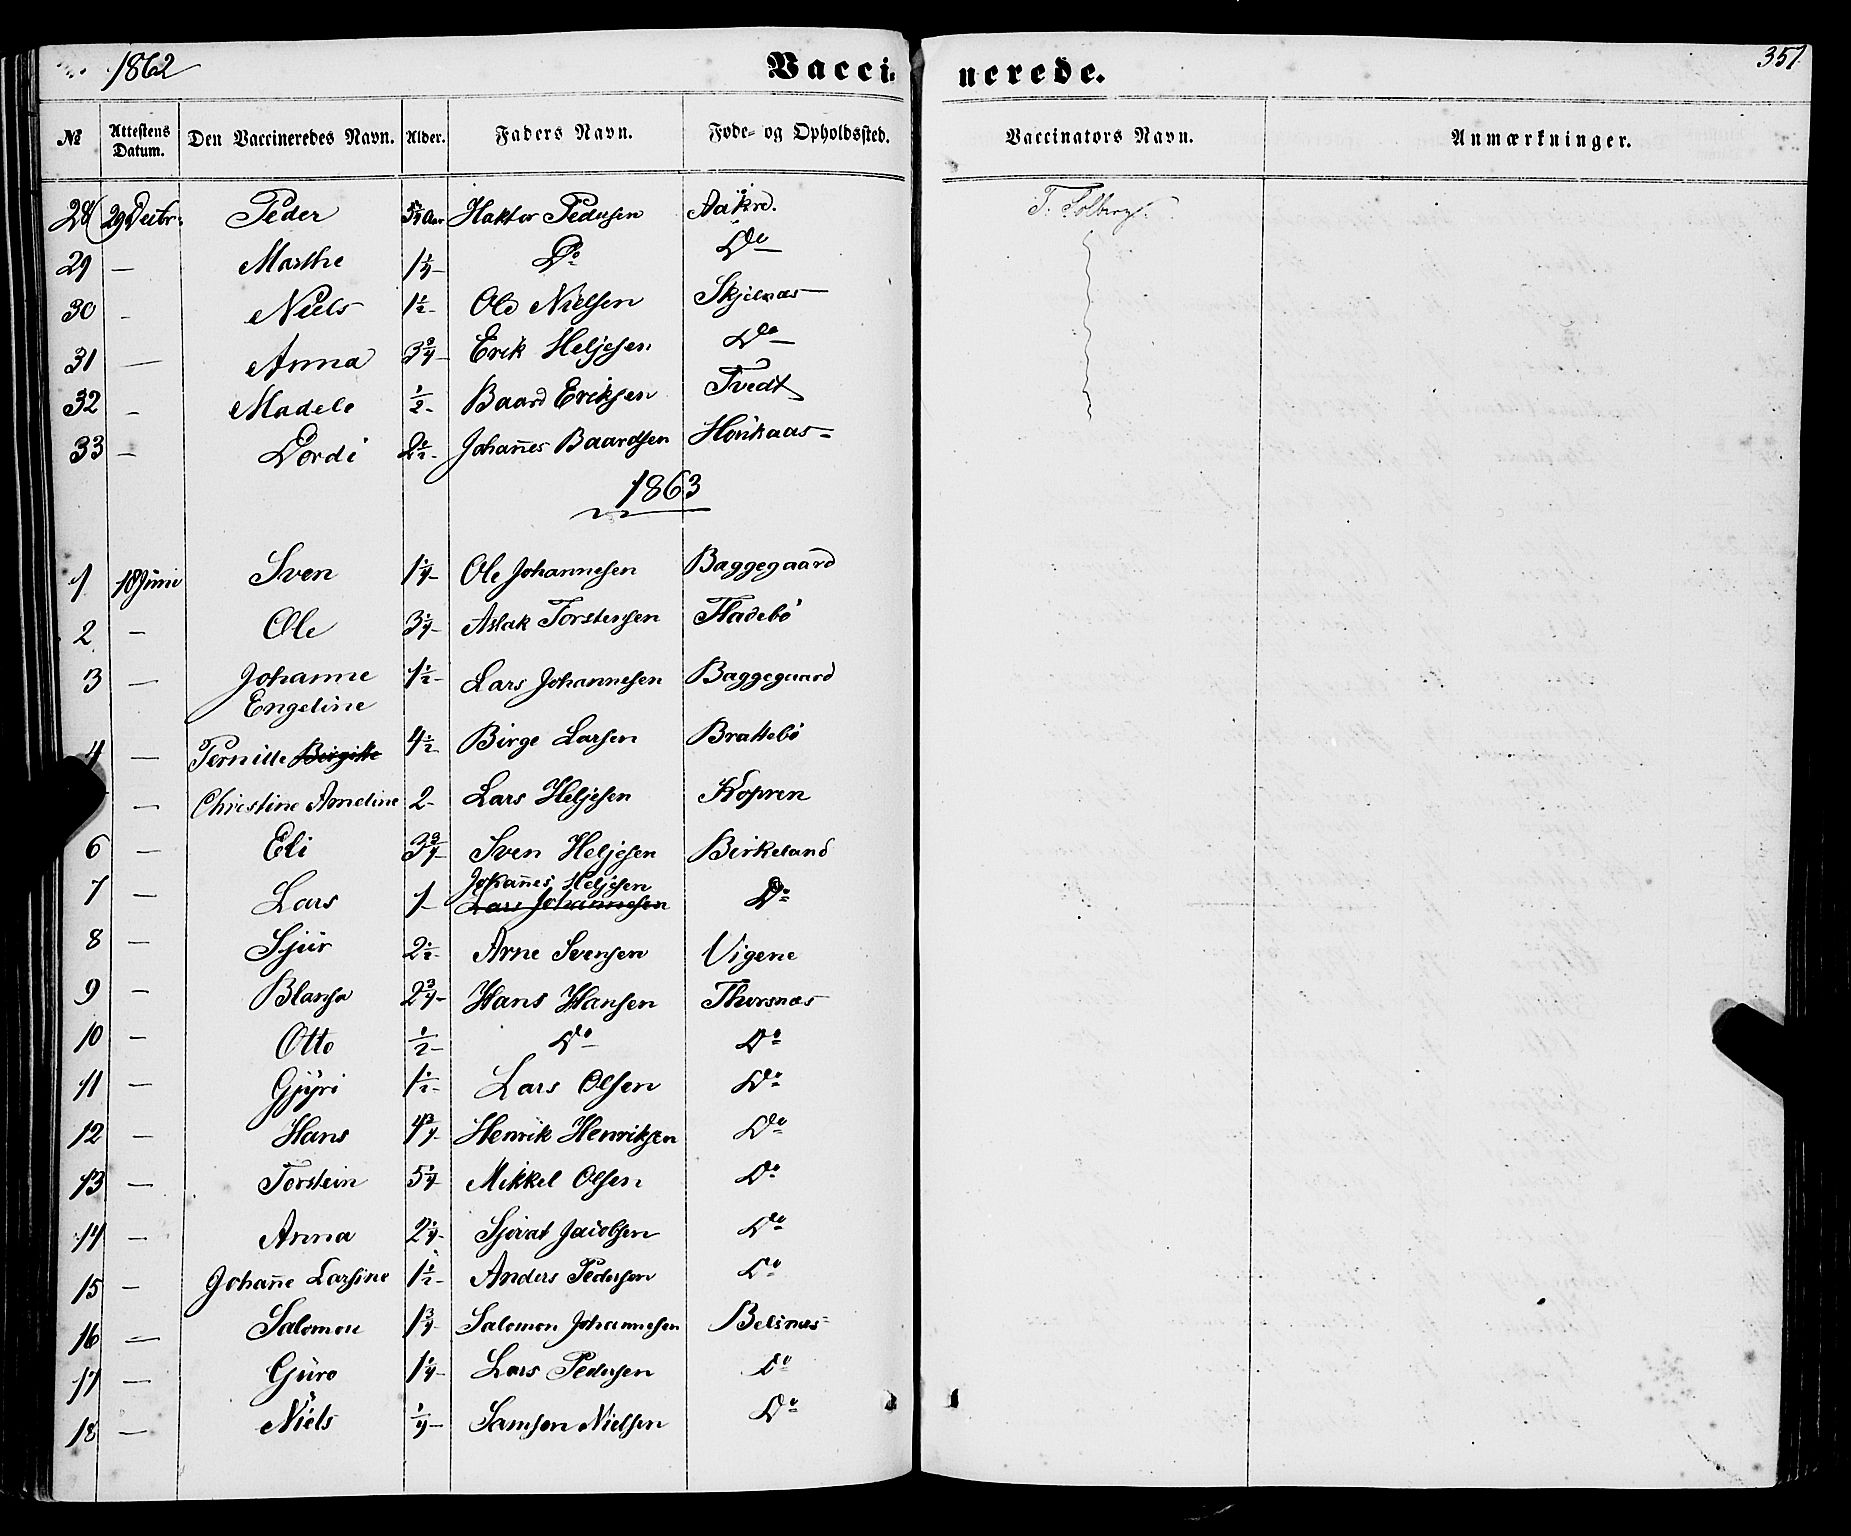 1862 Vaccinerede. 351
№ Attestens Datum. Den Vaccineredes Navn. Alder. Faders Navn. Føde- og Opholdssted. Vaccinators Navn. Anmærkninger.
28 29 Decbr. Peder Aar Haktor Pedersen Aakre. T. Solberg.
29 — Marthe 1 1/4 Do Do
30 - Niels 1 1/2 Ole Nielsen Skjelnæs
31 — Anna 3 3/4 Erik Heljesen Do
32 - Madele 1/2 Baard Eriksen Tvedt
33 - Dordi 2 1/2 Johannes Baardsen
1863
1 18 Juni Sven 1 1/4 Ole Johannesen Baggegaard
2 — Ole 3 1/4 Aslak Torstensen Fladebø
3 — Johanne 1 1/2 Lars Johannesen Baggegaard
Engeline
4 — Pernille Birgitte 4 1/2 Birge Larsen Brattebø
— Christine Ameline 2 Lars Heljesen Kopren
6 — Eli 3 3/4 Sven Heljesen Birkeland
Johannes Heljesen
7 — Lars 1 Lars Johannesen Do
8 — Sjur 2 1/2 Arne Svensen Vigene
9 — Blansa 2 3/4 Hans Hansen Thorsnæs
10 — Otto 1/2 Do Do
11 — Gjyri 1 1/2 Lars Olsen Do
12 — Hans 4 3/4 Henrik Henriksen Do
13 — Torstein 5 1/4 Mikkel Olsen Do
14 — Anna 2 1/4 Sjovat Jacobsen Do
15 — Johanne Larsine 1 1/2 Anders Pedersen Do
16 — Salomon 1 3/4 Salomon Johannesen Belsnæs
17 — Guro 1 1/4 Lars Pedersen Do
18 — Niels 1/4 Samson Nielsen Do